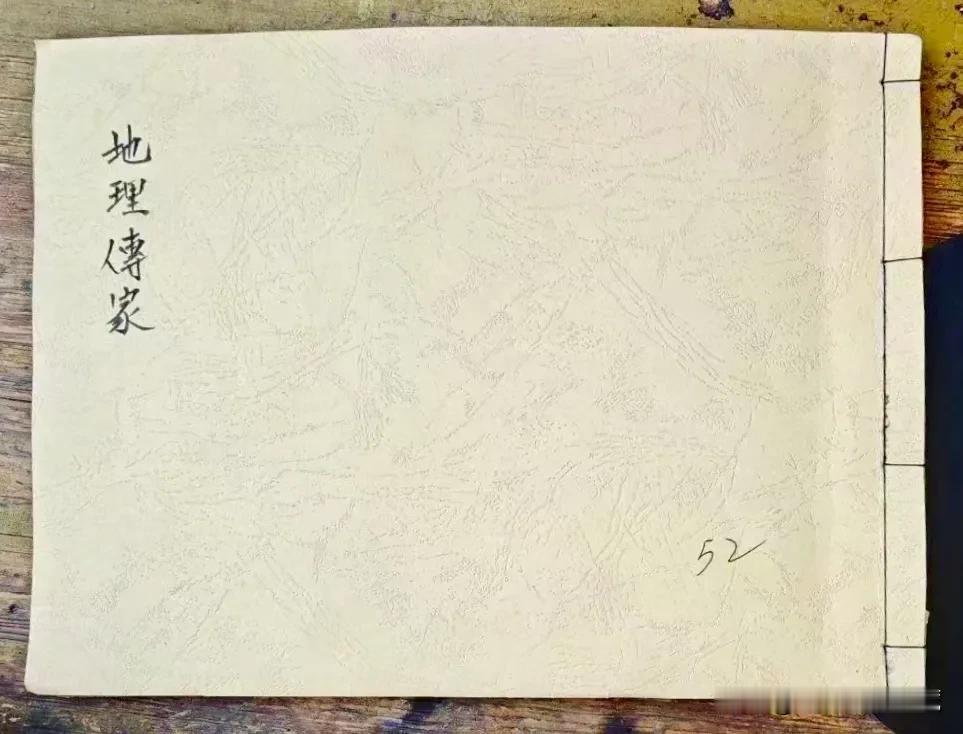 地理傳家
52